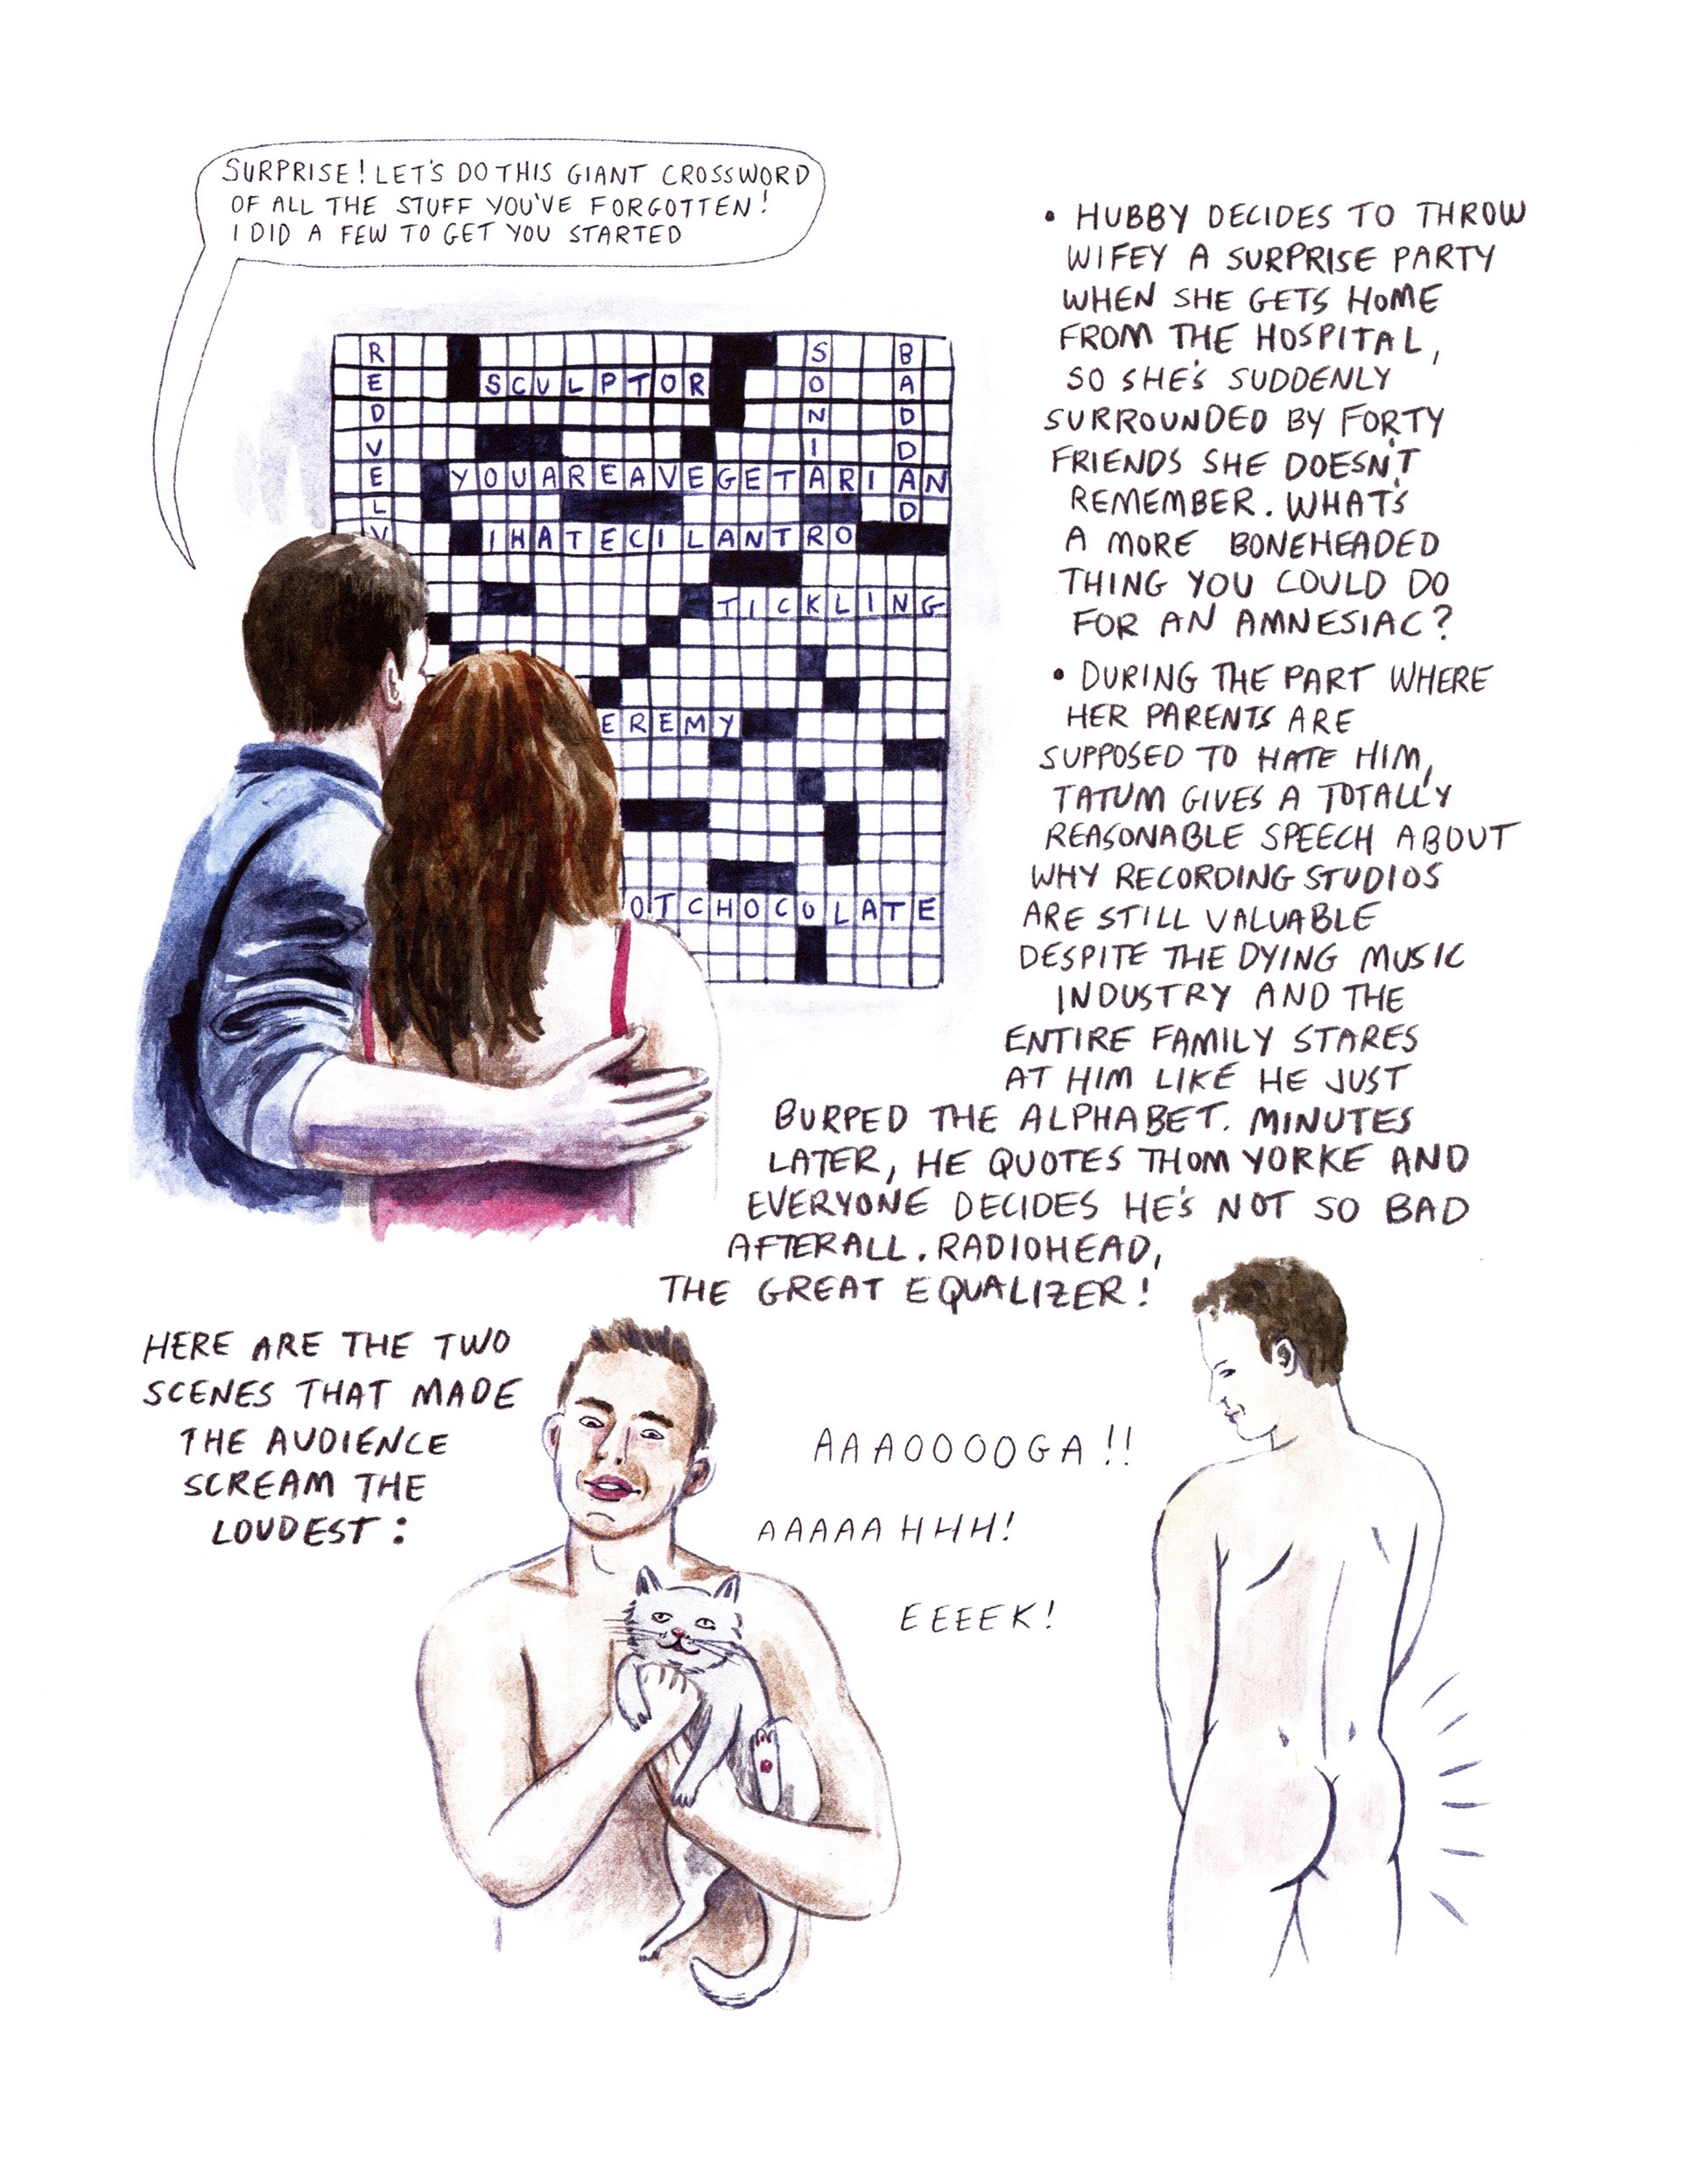 SURPRISE! LET'S DO THIS GIANT CROSSWORD
OF ALL THE STUFF YOU'VE FORGOTTEN!
I DID A FEW TO GET YOU STARTED
REDVELV
SCULPTOR
SONIA
BADDAD
YOUAREAVEGETARIAN
IHATECILANTRO
TICKLING
EREMY
OTCHOCOLATE
• HUBBY DECIDES TO THROW
WIFEY A SURPRISE PARTY
WHEN SHE GETS HOME
FROM THE HOSPITAL,
SO SHE'S SUDDENLY
SURROUNDED BY FORTY
FRIENDS SHE DOESN'T
REMEMBER. WHAT'S
A MORE BONEHEADED
THING YOU COULD DO
FOR AN AMNESIAC?
• DURING THE PART WHERE
HER PARENTS ARE
SUPPOSED TO HATE HIM,
TATUM GIVES A TOTALLY
REASONABLE SPEECH ABOUT
WHY RECORDING STUDIOS
ARE STILL VALUABLE
DESPITE THE DYING MUSIC
INDUSTRY AND THE
ENTIRE FAMILY STARES
AT HIM LIKE HE JUST
BURPED THE ALPHABET. MINUTES
LATER, HE QUOTES THOM YORKE AND
EVERYONE DECIDES HE'S NOT SO BAD
AFTERALL. RADIOHEAD,
THE GREAT EQUALIZER!
HERE ARE THE TWO
SCENES THAT MADE
THE AUDIENCE
SCREAM THE
LOUDEST:
AAAOOOOGA!!
AAAAAHHH!
EEEEK!